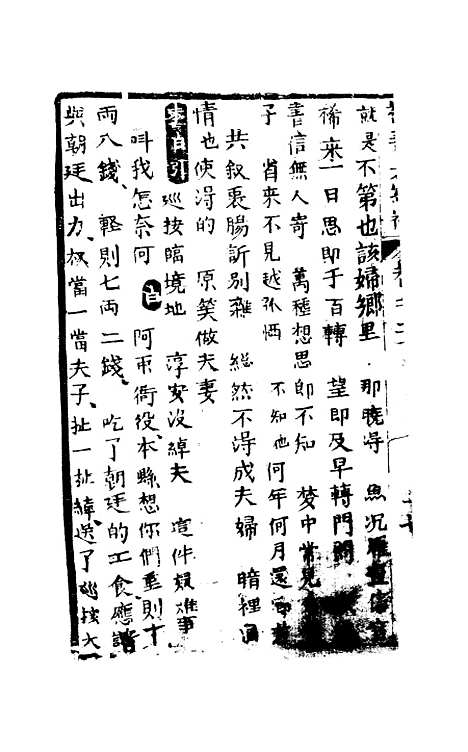 就是不第也該婦鄉里 那曉得 魚沉雁
稀來一日思郎千百轉 望郎及早轉門
書信無人寄 萬種想思郎不知 夢中常見
子 省來不見越孤恓 不知他何年何月還
共叙衷腸訴別離 縱然不淂成夫婦 暗裡
情也使淂的 原笑做夫妻
巡按臨境地 淳安没縴夫 這件疑难事
呌我怎奈何 白 阿衙役本縣想你們重則十
兩八錢輕則七兩二錢 吃了朝廷的工食應該
與朝廷出力权當一當夫子扯一扯縴送了巡按大